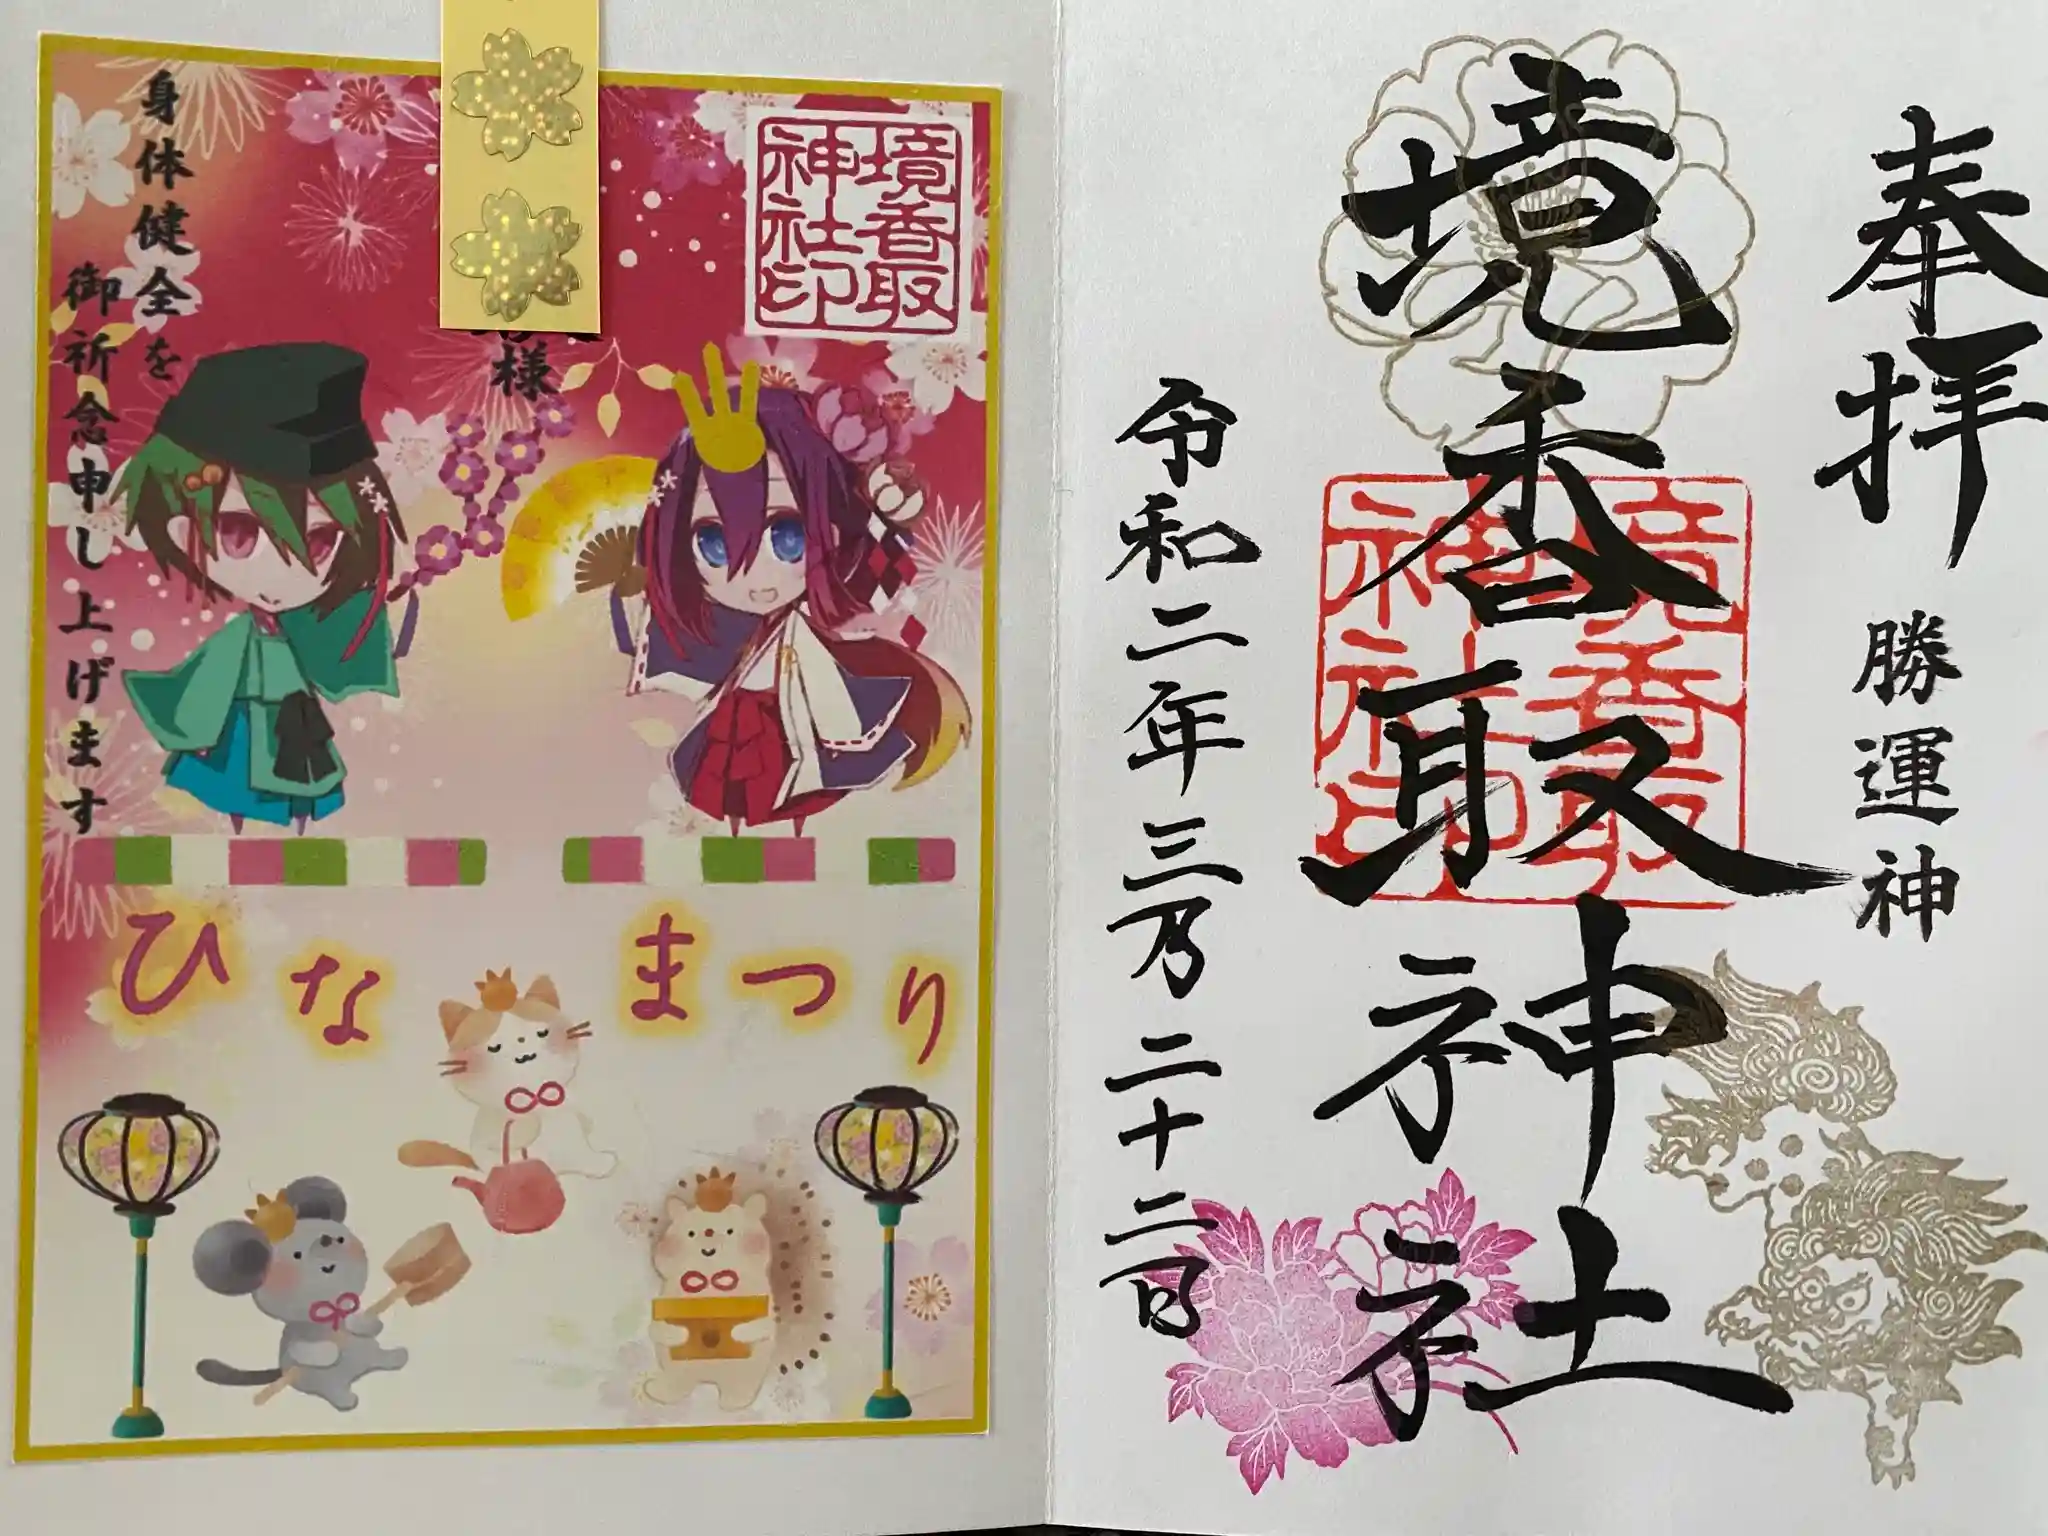 奉拝
勝運神
境香取神社
境香取
神社印
令和二年三乃二十二日
境香取
神社印
様
身体健全を
御祈念申し上げます
ひなまつり